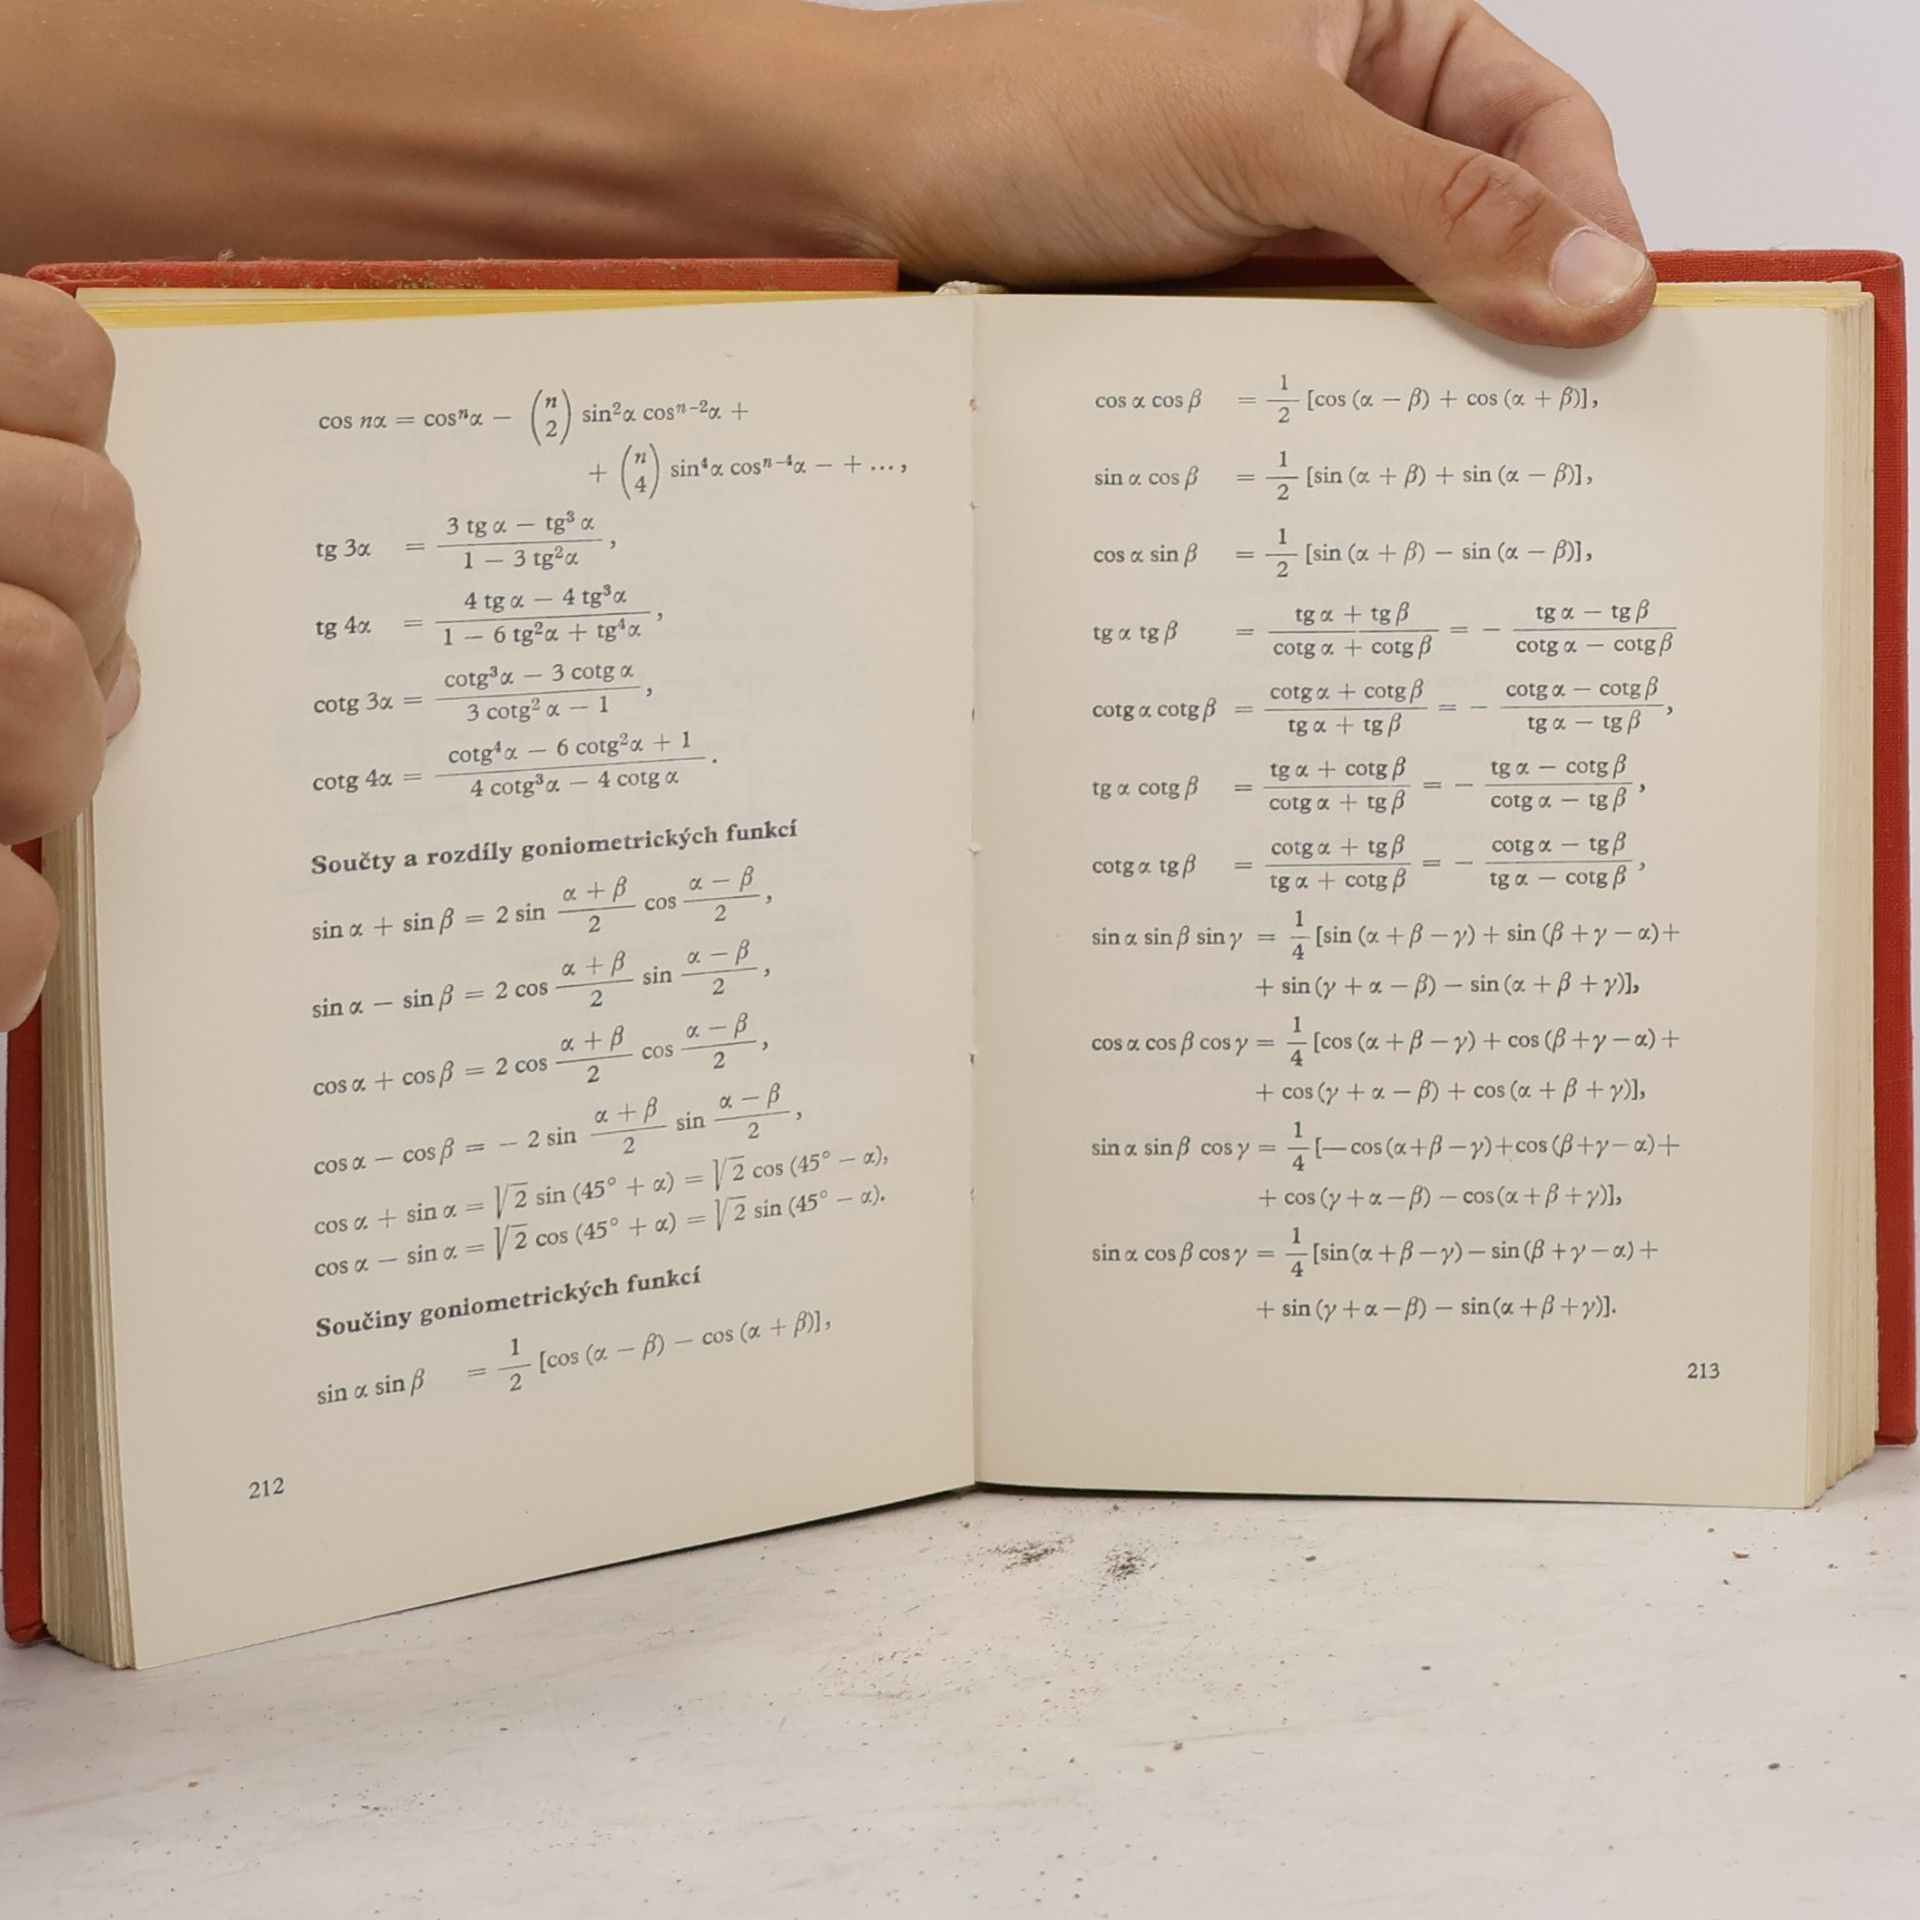 cos nα = cosⁿα − (n 2) sin²α cosⁿ⁻²α +
+ (n 4) sin⁴α cosⁿ⁻⁴α − + ...,
tg 3α = (3 tg α − tg³ α)/(1 − 3 tg²α),
tg 4α = (4 tg α − 4 tg³α)/(1 − 6 tg²α + tg⁴α),
cotg 3α = (cotg³α − 3 cotg α)/(3 cotg² α − 1),
cotg 4α = (cotg⁴α − 6 cotg²α + 1)/(4 cotg³α − 4 cotg α).
Součty a rozdíly goniometrických funkcí
sin α + sin β = 2 sin (α + β)/2 cos (α − β)/2,
sin α − sin β = 2 cos (α + β)/2 sin (α − β)/2,
cos α + cos β = 2 cos (α + β)/2 cos (α − β)/2,
cos α − cos β = − 2 sin (α + β)/2 sin (α − β)/2,
cos α + sin α = √2 sin (45° + α) = √2 cos (45° − α),
cos α − sin α = √2 cos (45° + α) = √2 sin (45° − α).
Součiny goniometrických funkcí
sin α sin β = 1/2 [cos (α − β) − cos (α + β)],
212
cos α cos β = 1/2 [cos (α − β) + cos (α + β)],
sin α cos β = 1/2 [sin (α + β) + sin (α − β)],
cos α sin β = 1/2 [sin (α + β) − sin (α − β)],
tg α tg β = (tg α + tg β)/(cotg α + cotg β) = − (tg α − tg β)/(cotg α − cotg β)
cotg α cotg β = (cotg α + cotg β)/(tg α + tg β) = − (cotg α − cotg β)/(tg α − tg β),
tg α cotg β = (tg α + cotg β)/(cotg α + tg β) = − (tg α − cotg β)/(cotg α − tg β),
cotg α tg β = (cotg α + tg β)/(tg α + cotg β) = − (cotg α − tg β)/(tg α − cotg β),
sin α sin β sin γ = 1/4 [sin (α + β − γ) + sin (β + γ − α) +
+ sin (γ + α − β) − sin (α + β + γ)],
cos α cos β cos γ = 1/4 [cos (α + β − γ) + cos (β + γ − α) +
+ cos (γ + α − β) + cos (α + β + γ)],
sin α sin β cos γ = 1/4 [− cos (α + β − γ) + cos (β + γ − α) +
+ cos (γ + α − β) − cos (α + β + γ)],
sin α cos β cos γ = 1/4 [sin (α + β − γ) − sin (β + γ − α) +
+ sin (γ + α − β) − sin (α + β + γ)].
213